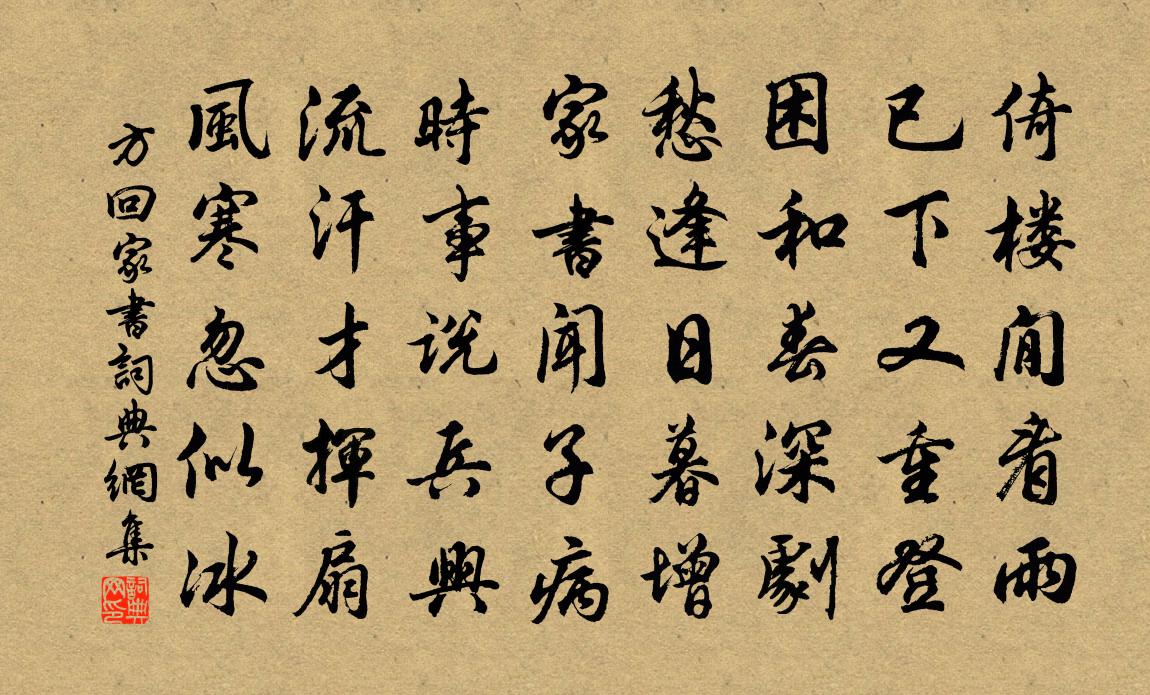 倚楼閒看雨
已下又重登
困和春深劇
愁逢日暮增
家書聞子病
時事説兵興
流汗才揮扇
風寒忽似冰
方回家書詞典網集
詞典網印